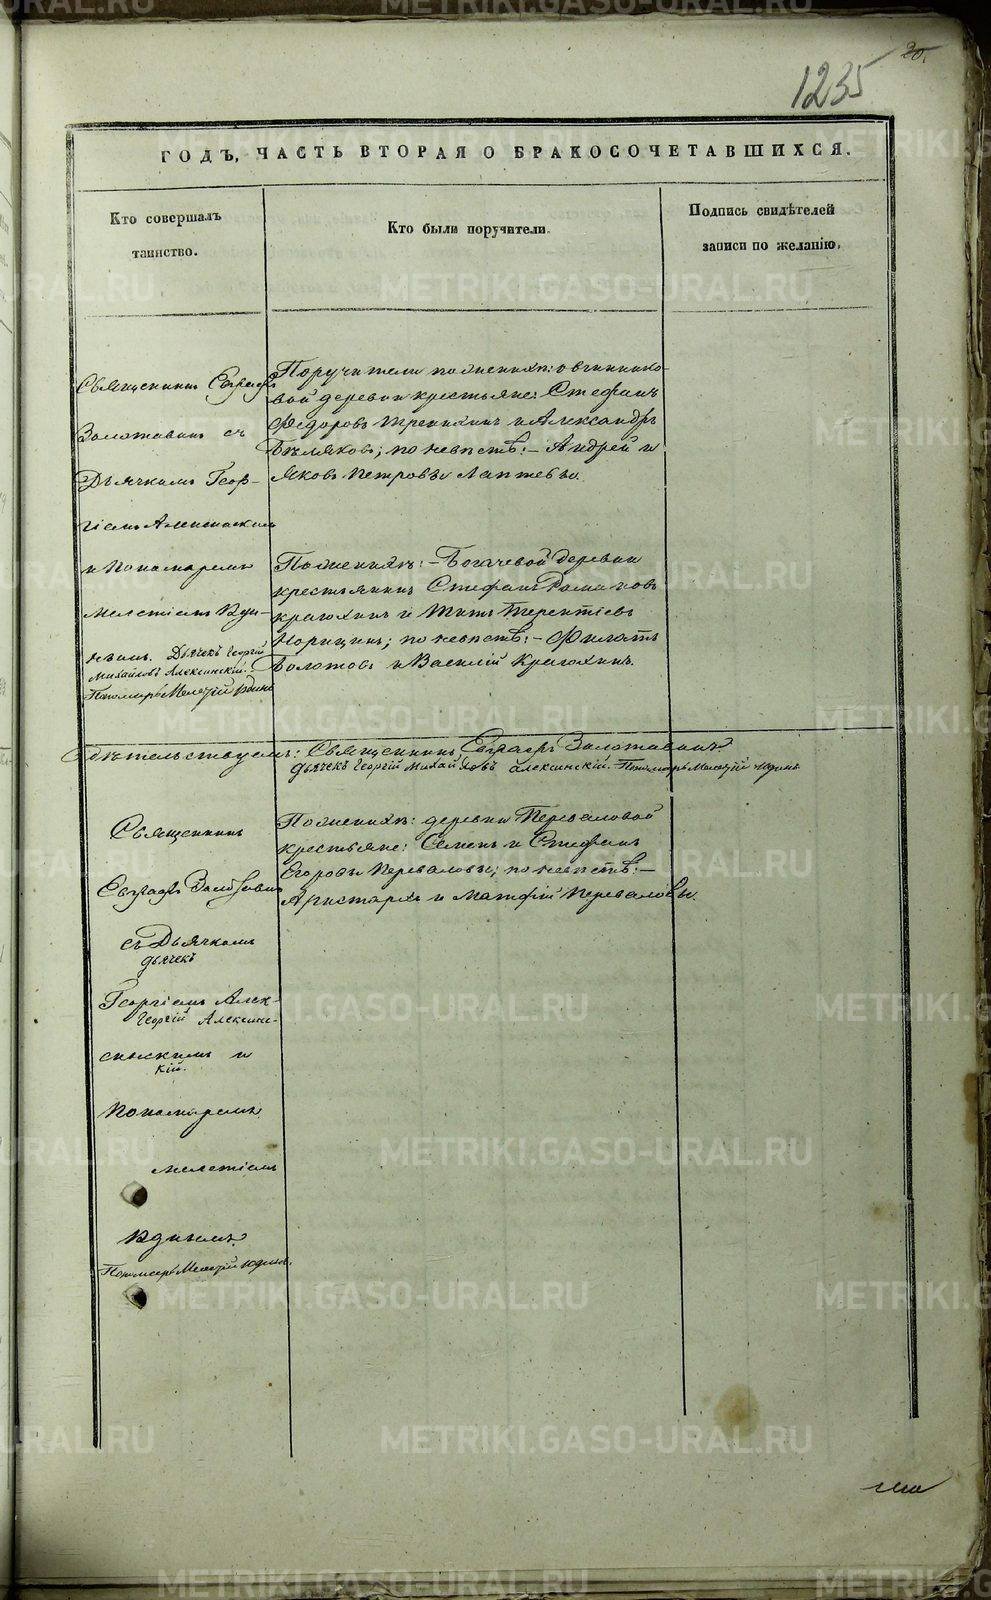 20.
1235
ГОДЪ, ЧАСТЬ ВТОРАЯ О БРАКОСОЧЕТАВШИХСЯ.
Кто совершалъ
таинство.
Кто были поручители.
Подпись свидѣтелей
записи по желанію.
Священникъ Евграфъ
Золотавинъ съ
Дьячкомъ Геор-
гіемъ Алексинскимъ
и Пономаремъ
Мелетіемъ Юди-
нымъ. Дьячекъ Георгій
Михайловъ Алексинскій.
Пономарь Мелетій Юдинъ
Поручители по женихѣ: Овчиннико-
вой деревни крестьяне: Стефанъ
Федоровъ и Александръ
Бѣляковъ; по невѣстѣ: – Андрей и
Яковъ Петровы Лаптевы.
По женихѣ: – Богачевой деревни
крестьянинъ Стефанъ Романовъ
и Титъ Терентіевъ
по невѣстѣ: – Филатъ
Болотовъ и Василій
Священникъ Евграфъ Золотавинъ
дьячекъ Георгій Михайловъ Алексинскій. Пономарь Мелетій Юдинъ
Священникъ
Евграфъ Золотавинъ
съ Дьячкомъ
дьячекъ
Георгіемъ Алек-
Георгій Алексинс-
синскимъ и
кій.
Пономаремъ
Мелетіемъ
Юдинымъ.
Пономарь Мелетій Юдинъ.
По женихѣ: деревни Переваловой
крестьяне: Семенъ и Стефанъ
Егоровы Переваловы; по невѣстѣ: –
Аристархъ и Матфій Переваловы.
METRIKI.GASO-URAL.RU